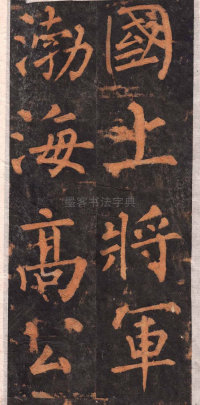 國上將軍
渤海高公
墨客书法字典